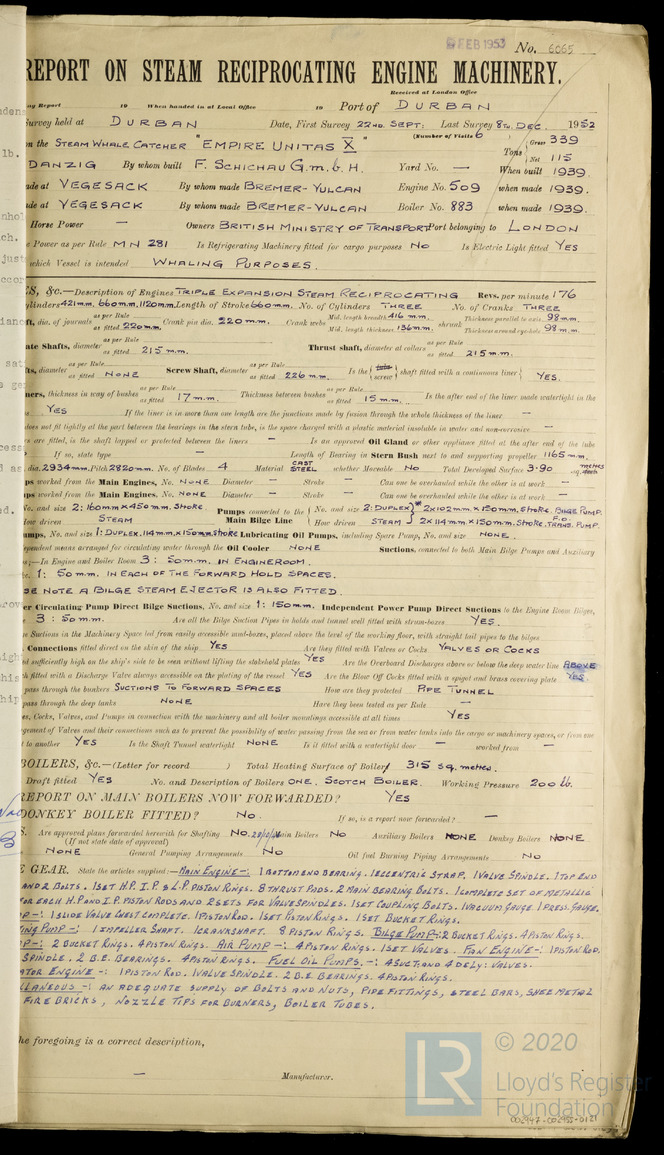 FEB 1953 No. 6065
REPORT ON STEAM RECIPROCATING ENGINE MACHINERY.
Received at London Office
ng Report 19 When handed in at Local Office 19 Port of DURBAN
Survey held at DURBAN Date, First Survey 22ND. SEPT: Last Survey 8TH. DEC. 1952
(Number of Visits 6
on the STEAM WHALE CATCHER "EMPIRE UNITAS X" Tons Gross 339 Net 115
DANZIG By whom built F. SCHICHAU G.m.b.H. Yard No. — When built 1939.
ade at VEGESACK By whom made BREMER-VULCAN Engine No. 509 when made 1939.
ade at VEGESACK By whom made BREMER-VULCAN Boiler No. 883 when made 1939.
Horse Power — Owners BRITISH MINISTRY OF TRANSPORT Port belonging to LONDON
e Power as per Rule MN 281 Is Refrigerating Machinery fitted for cargo purposes NO Is Electric Light fitted YES
which Vessel is intended WHALING PURPOSES.
ES, &c.—Description of Engines TRIPLE EXPANSION STEAM RECIPROCATING Revs. per minute 176
Cylinders 421mm. 660mm. 1120mm. Length of Stroke 660mm. No. of Cylinders THREE No. of Cranks THREE
dia. of journals as per Rule as fitted 220mm. Crank pin dia. 220mm. Crank webs Mid. length breadth 416mm. Mid. length thickness 136mm. shrunk Thickness parallel to axis 98mm. Thickness around eye-hole 98mm.
ate Shafts, diameter as per Rule as fitted 215mm. Thrust shaft, diameter at collars as per Rule as fitted 215mm.
ts, diameter as per Rule as fitted NONE Screw Shaft, diameter as per Rule as fitted 226mm. Is the tube screw shaft fitted with a continuous liner YES.
ners, thickness in way of bushes as per Rule as fitted 17mm. Thickness between bushes as per Rule as fitted 15mm. Is the after end of the liner made watertight in the
YES If the liner is in more than one length are the junctions made by fusion through the whole thickness of the liner —
does not fit tightly at the part between the bearings in the stern tube, is the space charged with a plastic material insoluble in water and non-corrosive —
s are fitted, is the shaft lapped or protected between the liners — Is an approved Oil Gland or other appliance fitted at the after end of the tube
If so, state type — Length of Bearing in Stern Bush next to and supporting propeller 1165mm.
dia. 2934mm. Pitch 2820mm. No. of Blades 4 Material CAST STEEL whether Moveable NO Total Developed Surface 3·90 sq. metres
ps worked from the Main Engines, No. NONE Diameter — Stroke — Can one be overhauled while the other is at work —
ps worked from the Main Engines, No. NONE Diameter — Stroke — Can one be overhauled while the other is at work —
No. and size 2: 160mm x 450mm. Stroke. Pumps connected to the Main Bilge Line No. and size 2: DUPLEX 2x102mm x 150mm. Stroke. BILGE PUMP.
How driven STEAM How driven STEAM 2x114mm x 150mm. Stroke. F.O. TRANS. PUMP.
umps, No. and size 1: DUPLEX. 114mm x 150mm Stroke Lubricating Oil Pumps, including Spare Pump, No. and size NONE.
ependent means arranged for circulating water through the Oil Cooler NONE Suctions, connected to both Main Bilge Pumps and Auxiliary
s;—In Engine and Boiler Room 3: 50mm. IN ENGINEROOM.
c. 1: 50mm. IN EACH OF THE FORWARD HOLD SPACES.
SE NOTE A BILGE STEAM EJECTOR IS ALSO FITTED.
er Circulating Pump Direct Bilge Suctions, No. and size 1: 150mm. Independent Power Pump Direct Suctions to the Engine Room Bilges,
3: 50mm. Are all the Bilge Suction Pipes in holds and tunnel well fitted with strum-boxes YES.
e Suctions in the Machinery Space led from easily accessible mud-boxes, placed above the level of the working floor, with straight tail pipes to the bilges
Connections fitted direct on the skin of the ship YES Are they fitted with Valves or Cocks VALVES OR COCKS
d sufficiently high on the ship's side to be seen without lifting the stokehold plates YES Are the Overboard Discharges above or below the deep water line ABOVE
h fitted with a Discharge Valve always accessible on the plating of the vessel YES Are the Blow Off Cocks fitted with a spigot and brass covering plate YES.
pass through the bunkers SUCTIONS TO FORWARD SPACES How are they protected PIPE TUNNEL
pass through the deep tanks NONE Have they been tested as per Rule —
es, Cocks, Valves, and Pumps in connection with the machinery and all boiler mountings accessible at all times YES
ngement of Valves and their connections such as to prevent the possibility of water passing from the sea or from water tanks into the cargo or machinery spaces, or from one
t to another YES Is the Shaft Tunnel watertight NONE Is it fitted with a watertight door — worked from —
BOILERS, &c.—(Letter for record ) Total Heating Surface of Boiler 315 sq. metres.
Draft fitted YES No. and Description of Boilers ONE. SCOTCH BOILER. Working Pressure 200 lb.
REPORT ON MAIN BOILERS NOW FORWARDED? YES
DONKEY BOILER FITTED? NO. If so, is a report now forwarded? —
S. Are approved plans forwarded herewith for Shafting NO. Main Boilers NO Auxiliary Boilers NONE Donkey Boilers NONE
(If not state date of approval)
NONE General Pumping Arrangements NO Oil fuel Burning Piping Arrangements NO
E GEAR. State the articles supplied:— MAIN ENGINE-: 1 BOTTOM END BEARING. 1 ECCENTRIC STRAP. 1 VALVE SPINDLE. 1 TOP END
AND 2 BOLTS. 1 SET H.P. I.P & L.P. PISTON RINGS. 8 THRUST PADS. 2 MAIN BEARING BOLTS. 1 COMPLETE SET OF METALLIC
FOR EACH H.P AND I.P. PISTON RODS AND 2 SETS FOR VALVE SPINDLES. 1 SET COUPLING BOLTS. 1 VACUUM GAUGE 1 PRESS. GAUGE.
P-: 1 SLIDE VALVE CHEST COMPLETE. 1 PISTON ROD. 1 SET PISTON RINGS. 1 SET BUCKET RINGS.
TING PUMP-: 1 IMPELLER SHAFT. 1 CRANKSHAFT. 8 PISTON RINGS. BILGE PUMP-: 2 BUCKET RINGS. 4 PISTON RINGS.
P-: 2 BUCKET RINGS. 4 PISTON RINGS. AIR PUMP-: 4 PISTON RINGS. 1 SET VALVES. FAN ENGINE-: 1 PISTON ROD.
SPINDLE. 2 B.E. BEARINGS. 4 PISTON RINGS. FUEL OIL PUMPS.-: 4 SUCT. AND 4 DELY: VALVES.
ATOR ENGINE-: 1 PISTON ROD. 1 VALVE SPINDLE. 2 B.E. BEARINGS. 4 PISTON RINGS.
LLANEOUS-: AN ADEQUATE SUPPLY OF BOLTS AND NUTS, PIPE FITTINGS, STEEL BARS, SHEE METAL
FIRE BRICKS, NOZZLE TIPS FOR BURNERS, BOILER TUBES.
he foregoing is a correct description,
— Manufacturer.
LR © 2020
Lloyd's Register
Foundation
002947-002955-0121